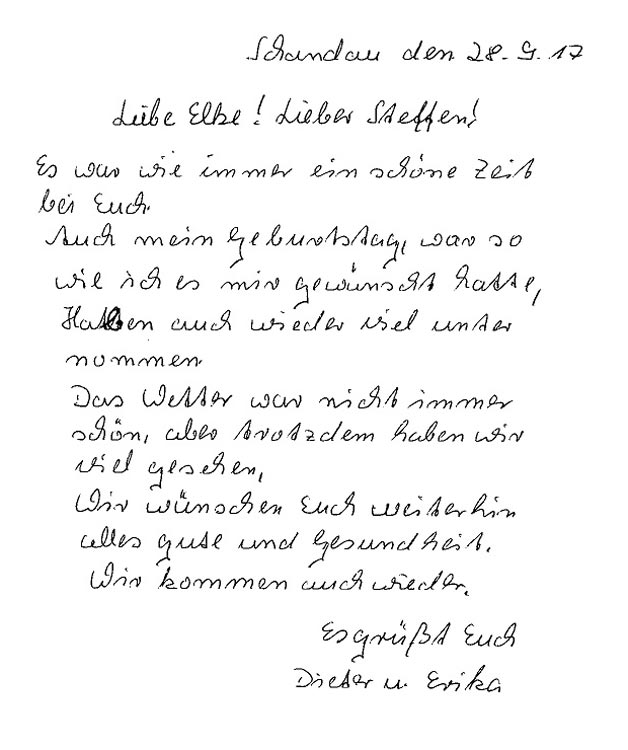 Schandau den 28.9.17
Liebe Elke! Lieber Steffen!
Es war wie immer ein schöne Zeit
bei Euch.
Auch mein Geburtstag, war so
wie ich es mir gewünscht hatte,
Haben auch wieder viel unter
nommen.
Das Wetter war nicht immer
schön, aber trotzdem haben wir
viel gesehen,
Wir wünschen Euch weiterhin
alles gute und Gesundheit.
Wir kommen auch wieder.
Es grüßt Euch
Dieter u. Erika